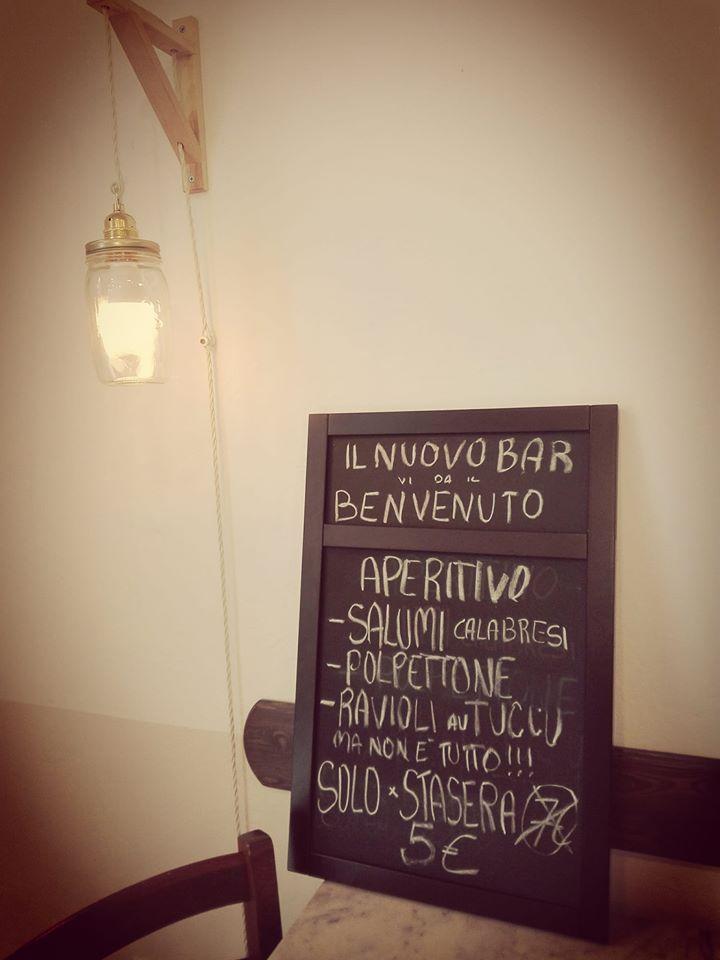 IL NUOVO BAR
VI DA IL
BENVENUTO
APERITIVO
-SALUMI CALABRESI
-POLPETTONE
-RAVIOLI AU TUCCU
MA NON E' TUTTO!!!
SOLO x STASERA 7€
5€